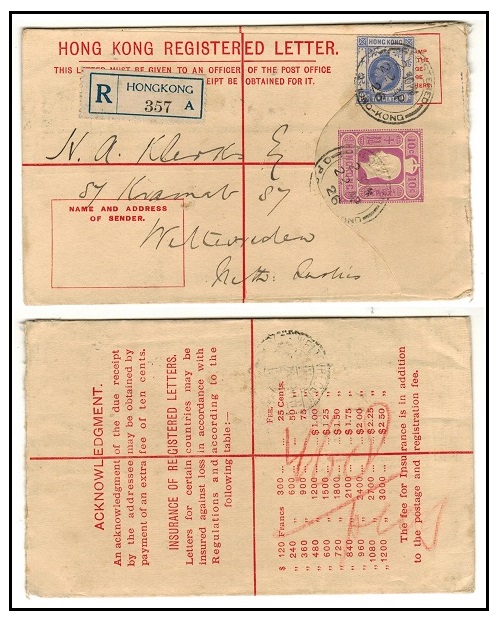 HONG KONG REGISTERED LETTER.
THIS LETTER MUST BE GIVEN TO AN OFFICER OF THE POST OFFICE
RECEIPT BE OBTAINED FOR IT.
R HONGKONG
357 A
HONG KONG
N. A. Klerk E
57 Kramat 57
Weltevreden
Neth. Indies
NAME AND ADDRESS
OF SENDER.
ACKNOWLEDGMENT.
An acknowledgment of the due receipt
by the addressee may be obtained by
payment of an extra fee of ten cents.
INSURANCE OF REGISTERED LETTERS.
Letters for certain countries may be
insured against loss in accordance with
Regulations and according to the
following table:—
FEE.
$ 120 Francs 300 ... 25 Cents.
" 240 " 600 ... 50 "
" 360 " 900 ... 75 "
" 480 " 1200 ... $1.00 "
" 600 " 1500 ... $1.25 "
" 720 " 1800 ... $1.50 "
" 840 " 2100 ... $1.75 "
" 960 " 2400 ... $2.00 "
" 1080 " 2700 ... $2.25 "
" 1200 " 3000 ... $2.50 "
The fee for Insurance is in addition
to the postage and registration fee.